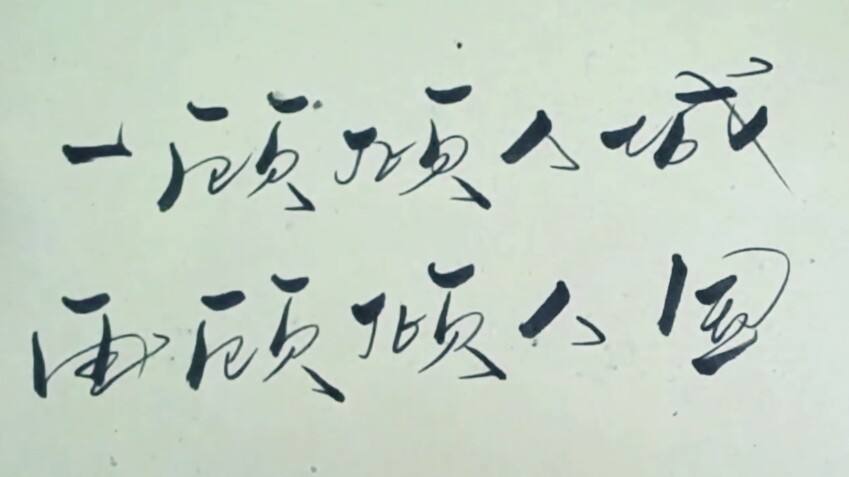 一顾倾人城
再顾倾人国